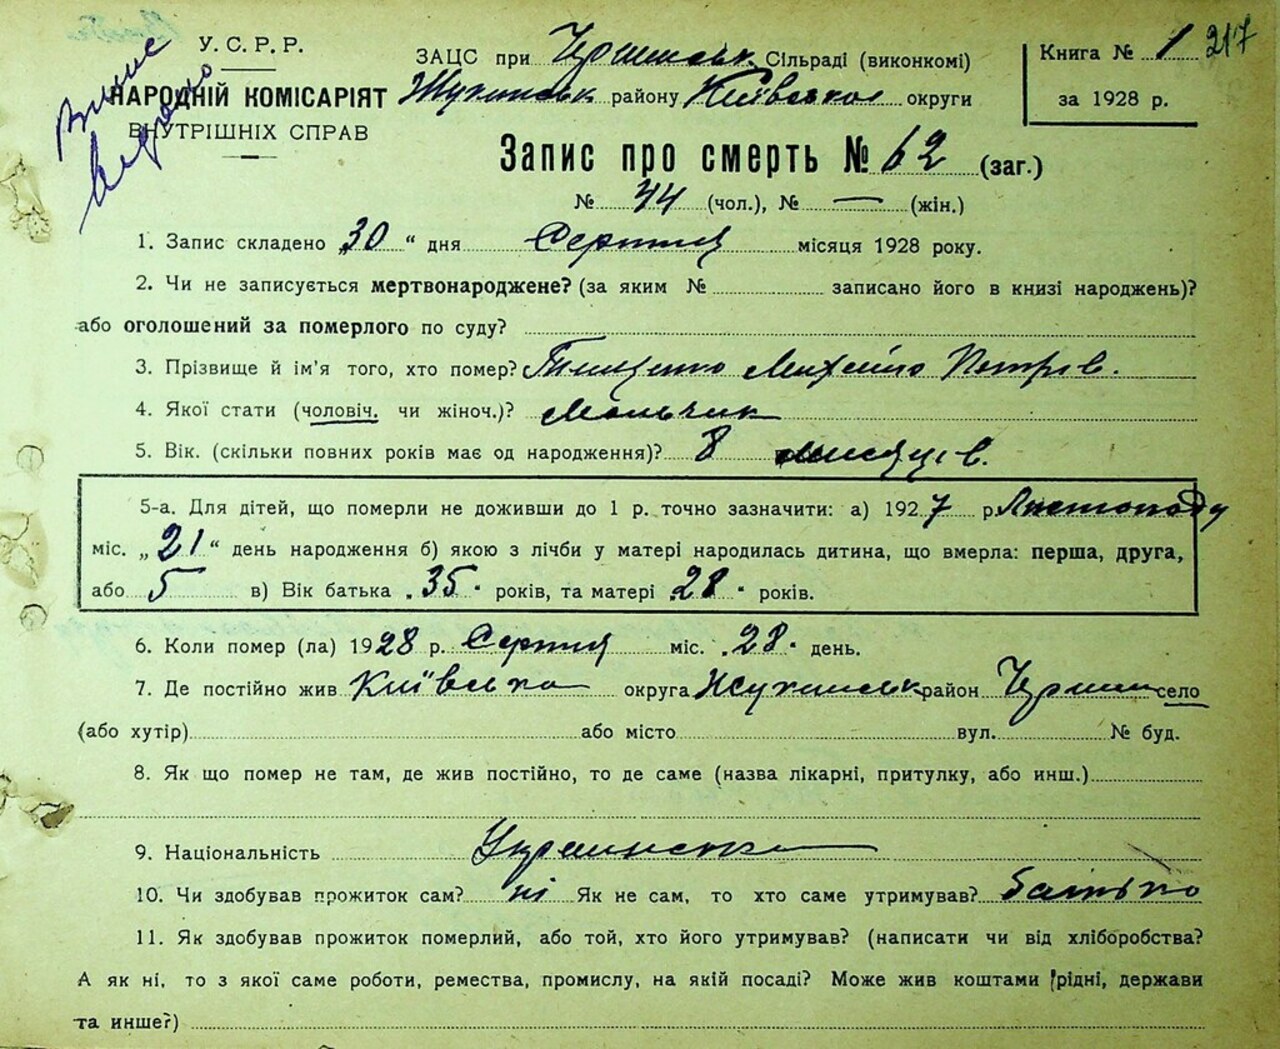 217
У. С. Р. Р.
НАРОДНІЙ КОМІСАРІЯТ
ВНУТРІШНІХ СПРАВ
ЗАЦС при Сільраді (виконкомі)
Жукинськ району Київської округи
Книга № 1
за 1928 р.
Запис про смерть № 62 (заг.)
№ 44 (чол.), № — (жін.)
1. Запис складено „30“ дня Серпня місяця 1928 року.
2. Чи не записується мертвонароджене? (за яким № записано його в книзі народжень)?
або оголошений за померлого по суду?
3. Прізвище й ім'я того, хто помер? Тищенко Михайло Петрів.
4. Якої стати (чоловіч. чи жіноч.)? Мальчик
5. Вік. (скільки повних років має од народження)? 8 місяців.
5-а. Для дітей, що померли не доживши до 1 р. точно зазначити: а) 1927 р. Листопаду
міс. „21“ день народження б) якою з лічби у матері народилась дитина, що вмерла: перша, друга,
або 5 в) Вік батька 35 років, та матері 28 років.
6. Коли помер (ла) 1928 р. Серпня міс. 28 день.
7. Де постійно жив Київська округа Жукинськ район село
(або хутір) або місто вул. № буд.
8. Як що помер не там, де жив постійно, то де саме (назва лікарні, притулку, або инш.)
9. Національність Украинська
10. Чи здобував прожиток сам? ні Як не сам, то хто саме утримував? батько
11. Як здобував прожиток померлий, або той, хто його утримував? (написати чи від хліборобства?
А як ні, то з якої саме роботи, ремества, промислу, на якій посаді? Може жив коштами рідні, держави
та инше?)